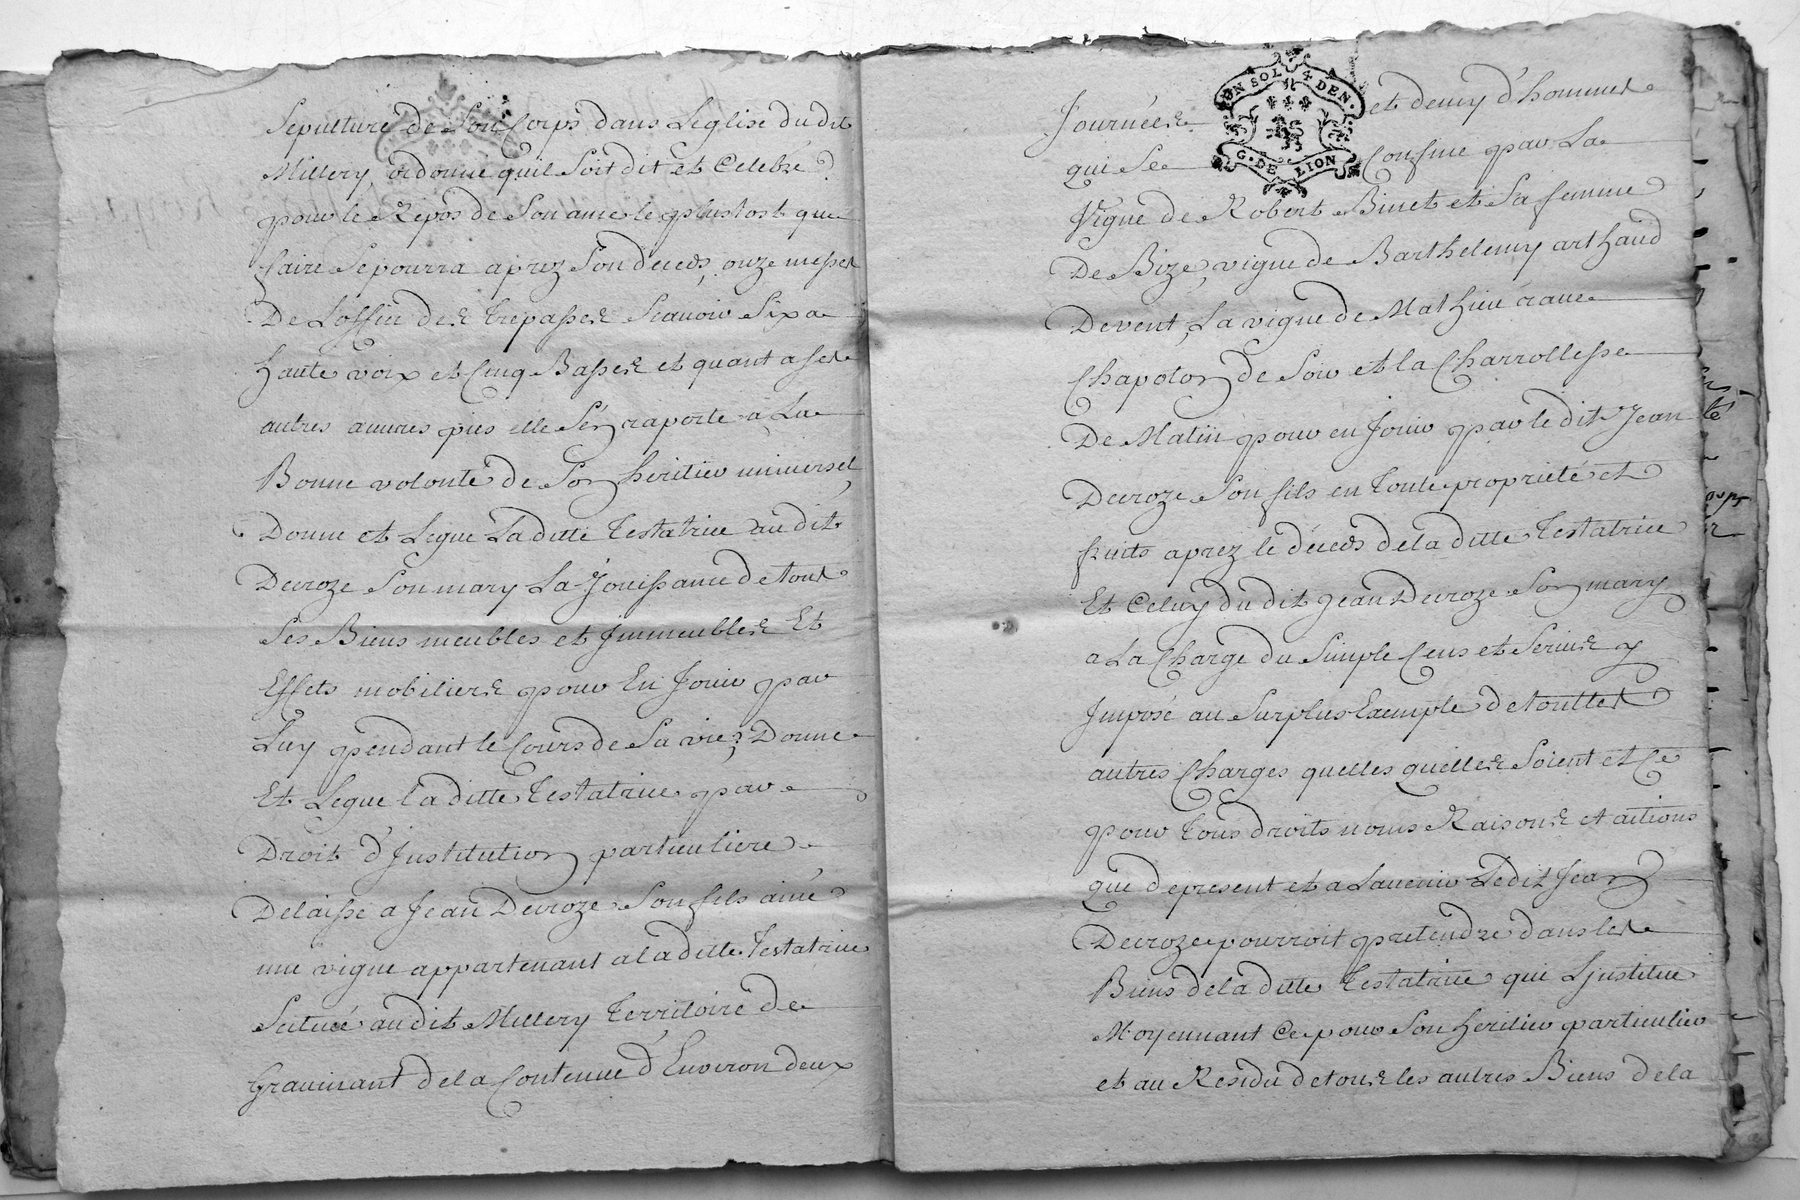 Sepulture de Son Corps dans Leglise dudit
Millery, ordonne quil Soit dit et Celebré
pour le Repos de Son ame le plustost que
faire Sepourra aprez Son deceds, onze messes
De Loffice des trepassez Scauoir Six a
haute voix et Cinq Basses et quant a ses
autres œuures pies elle S'en raporte a La
Bonne volonté de Son heritier uniuersel
Donne et Legue Laditte Testatrice audit
Decroze Son mary La Jouissance de tous
Ses Biens meubles et Jmmeubles Et
Effets mobiliers pour En Jouir par
Luy pendant le Cours de Sa vie, Donne
Et Legue la ditte Testatrice par
Droit d'Institution particuliere
Delaisse a Jean Decroze Son fils ainé
une vigne appartenant a la ditte Testatrice
Scituée audit Millery Territoire de
Grauinant dela Contenue d'Environ deux
Journées et demy d'hommes
UN SOL 4 DEN.
G. DE LION
qui Se Confine par La
Vigne de Robert Binet et Sa femme
De Bize, vigne de Barthelemy arthaud
Devent, La vigne de Mathieu
Chapolon de Soir et la Charrollesse
De Matin pour en Jouir par le dit Jean
Decroze Son fils en Toute propriété et
fruits aprez le déceds dela ditte Testatrice
Et Celuy du dit Jean Decroze Son mary
a La Charge du Simple Cens et Seruis y
Jmposé au Surplus Exemple de touttes
autres Charges quelles quelles Soient et Ce
pour Tous droits noms Raisons et actions
que de present et a Lauenir Ledit Jean
Decroze pourroit pretendre dans les
Biens dela ditte Testatrice qui Ljnstitue
Moyennant Ce pour Son heritier particulier
et au Residu de tous les autres Biens dela